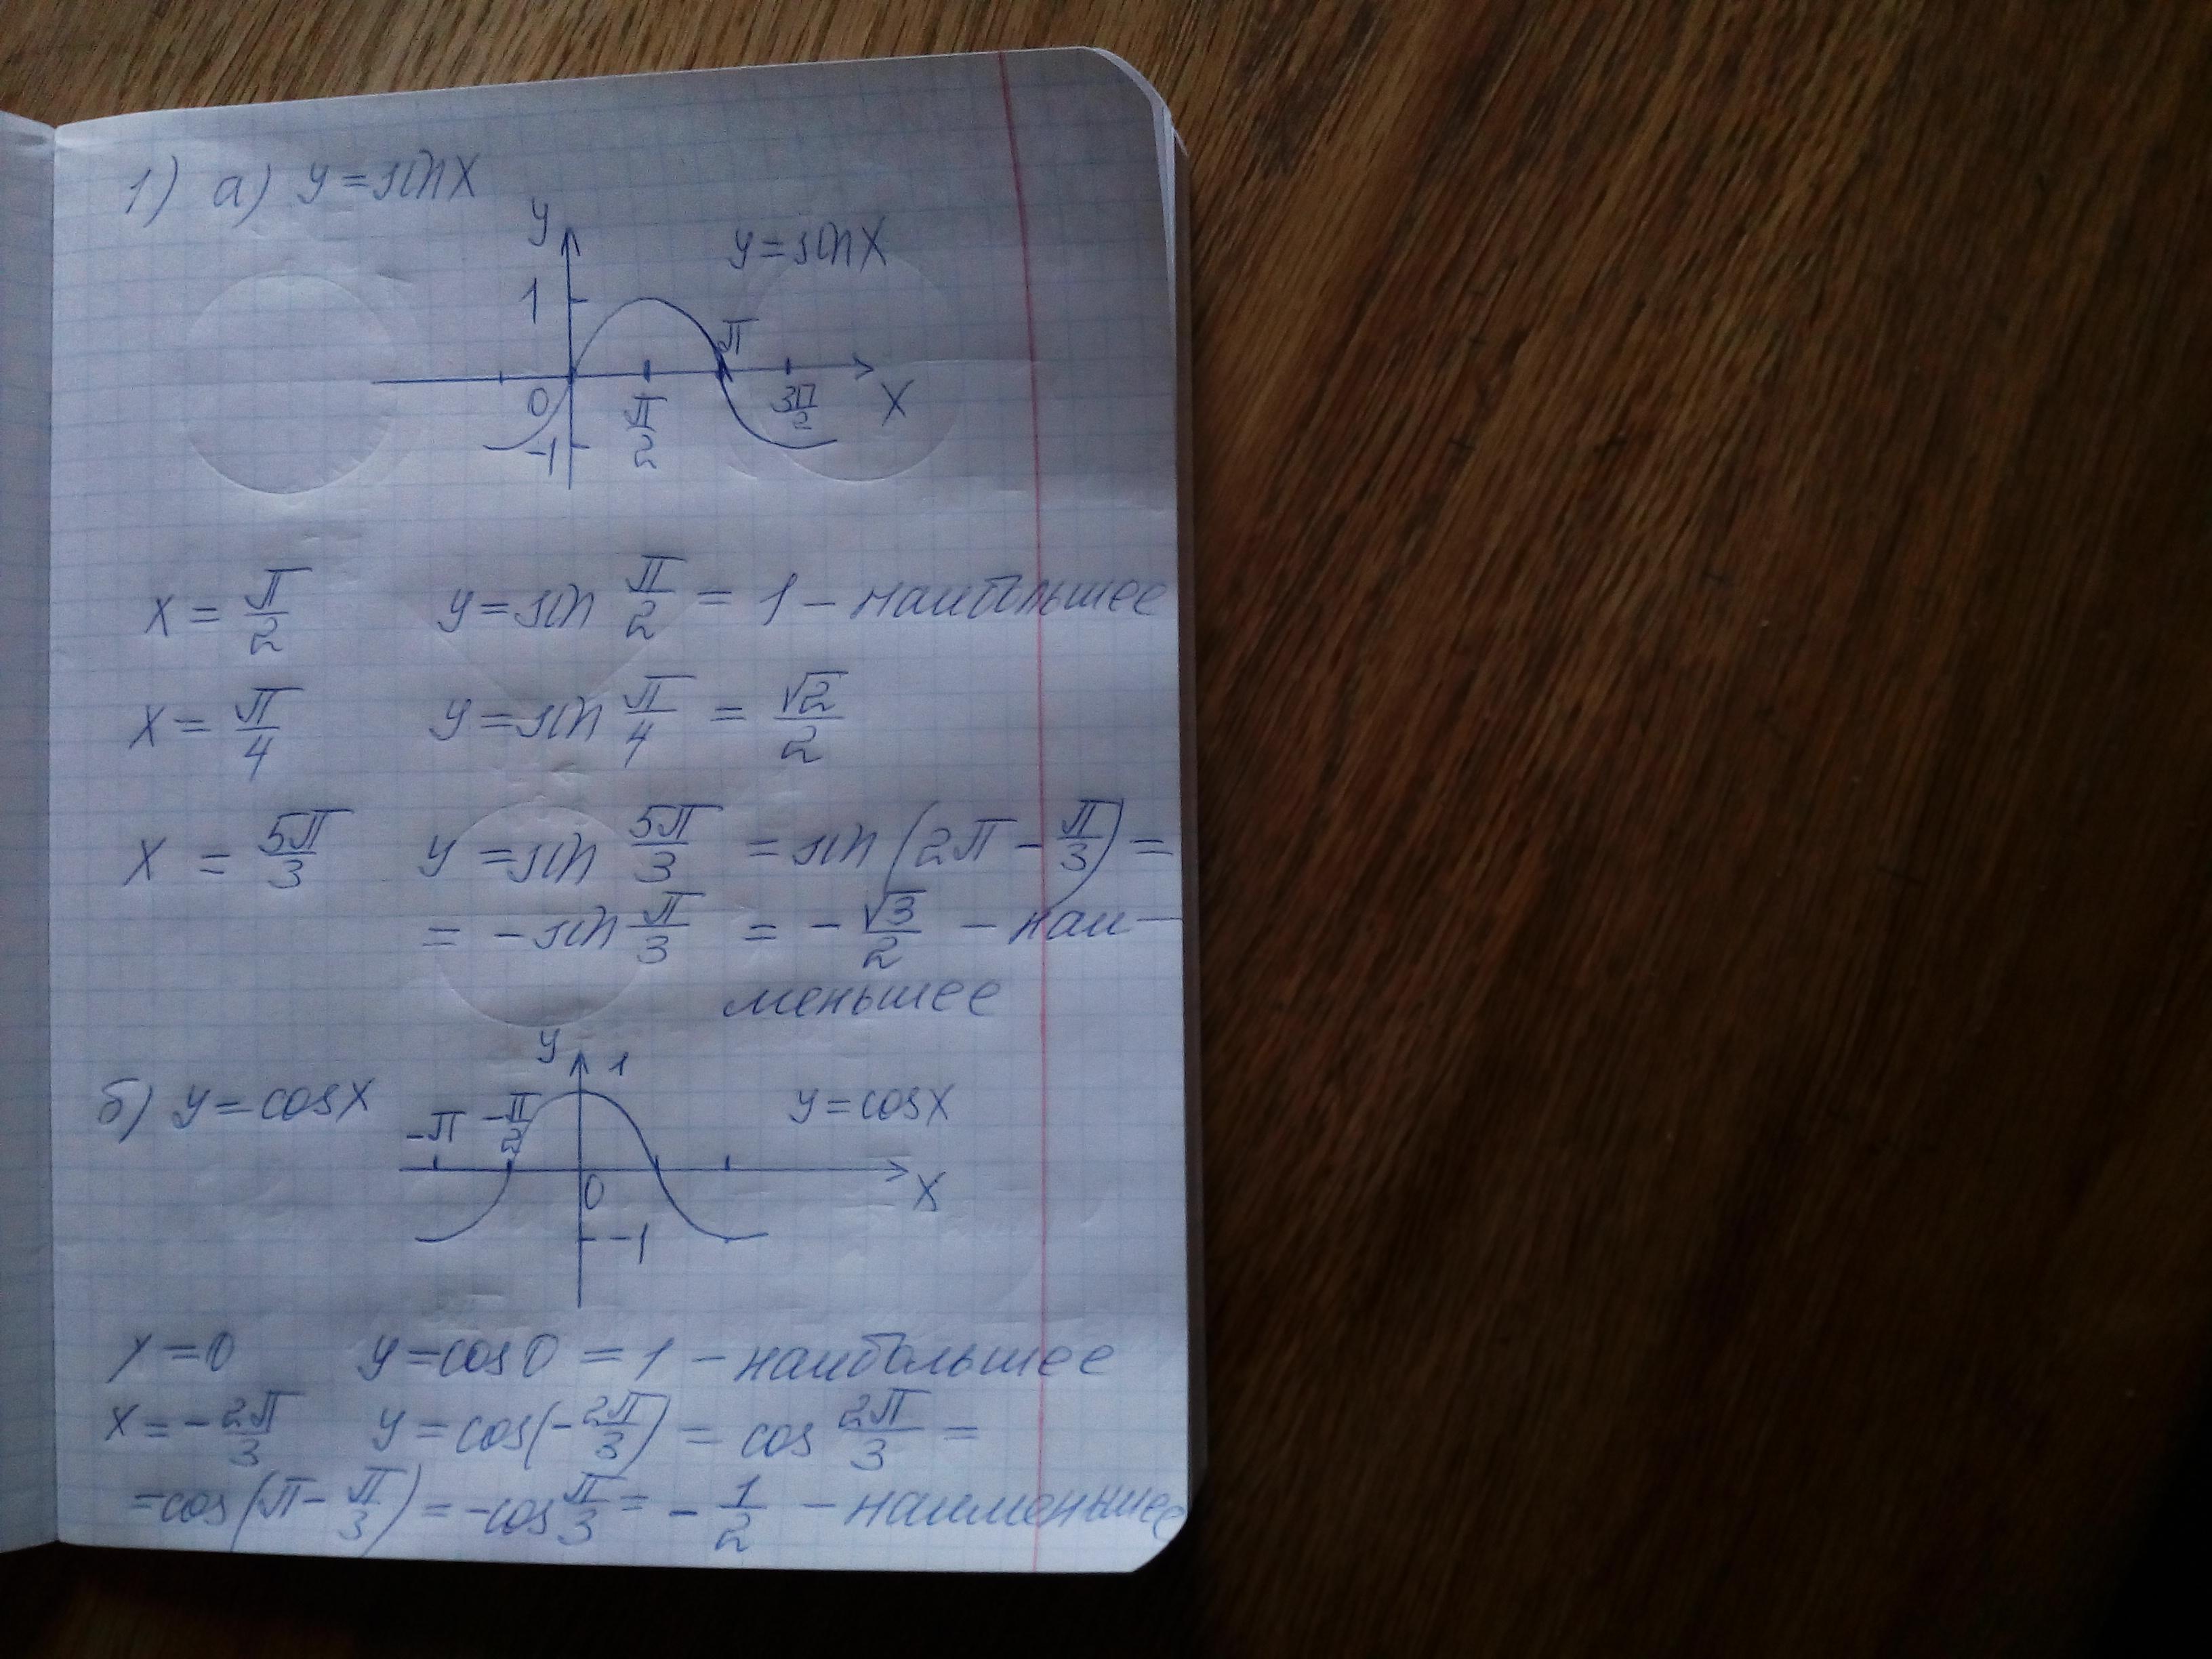 1) а) y = sin x
y
y = sin x
1
π
0
π/2
3π/2
x
-1
x = π/2 y = sin π/2 = 1 – наибольшее
x = π/4 y = sin π/4 = √2/2
x = 5π/3 y = sin 5π/3 = sin (2π - π/3) =
= - sin π/3 = - √3/2 – наи-
меньшее
y 1
б) y = cos x
-π -π/2
y = cos x
0
x
-1
x = 0 y = cos 0 = 1 – наибольшее
x = - 2π/3 y = cos(- 2π/3) = cos 2π/3 =
= cos (π - π/3) = -cos π/3 = - 1/2 – наименьшее